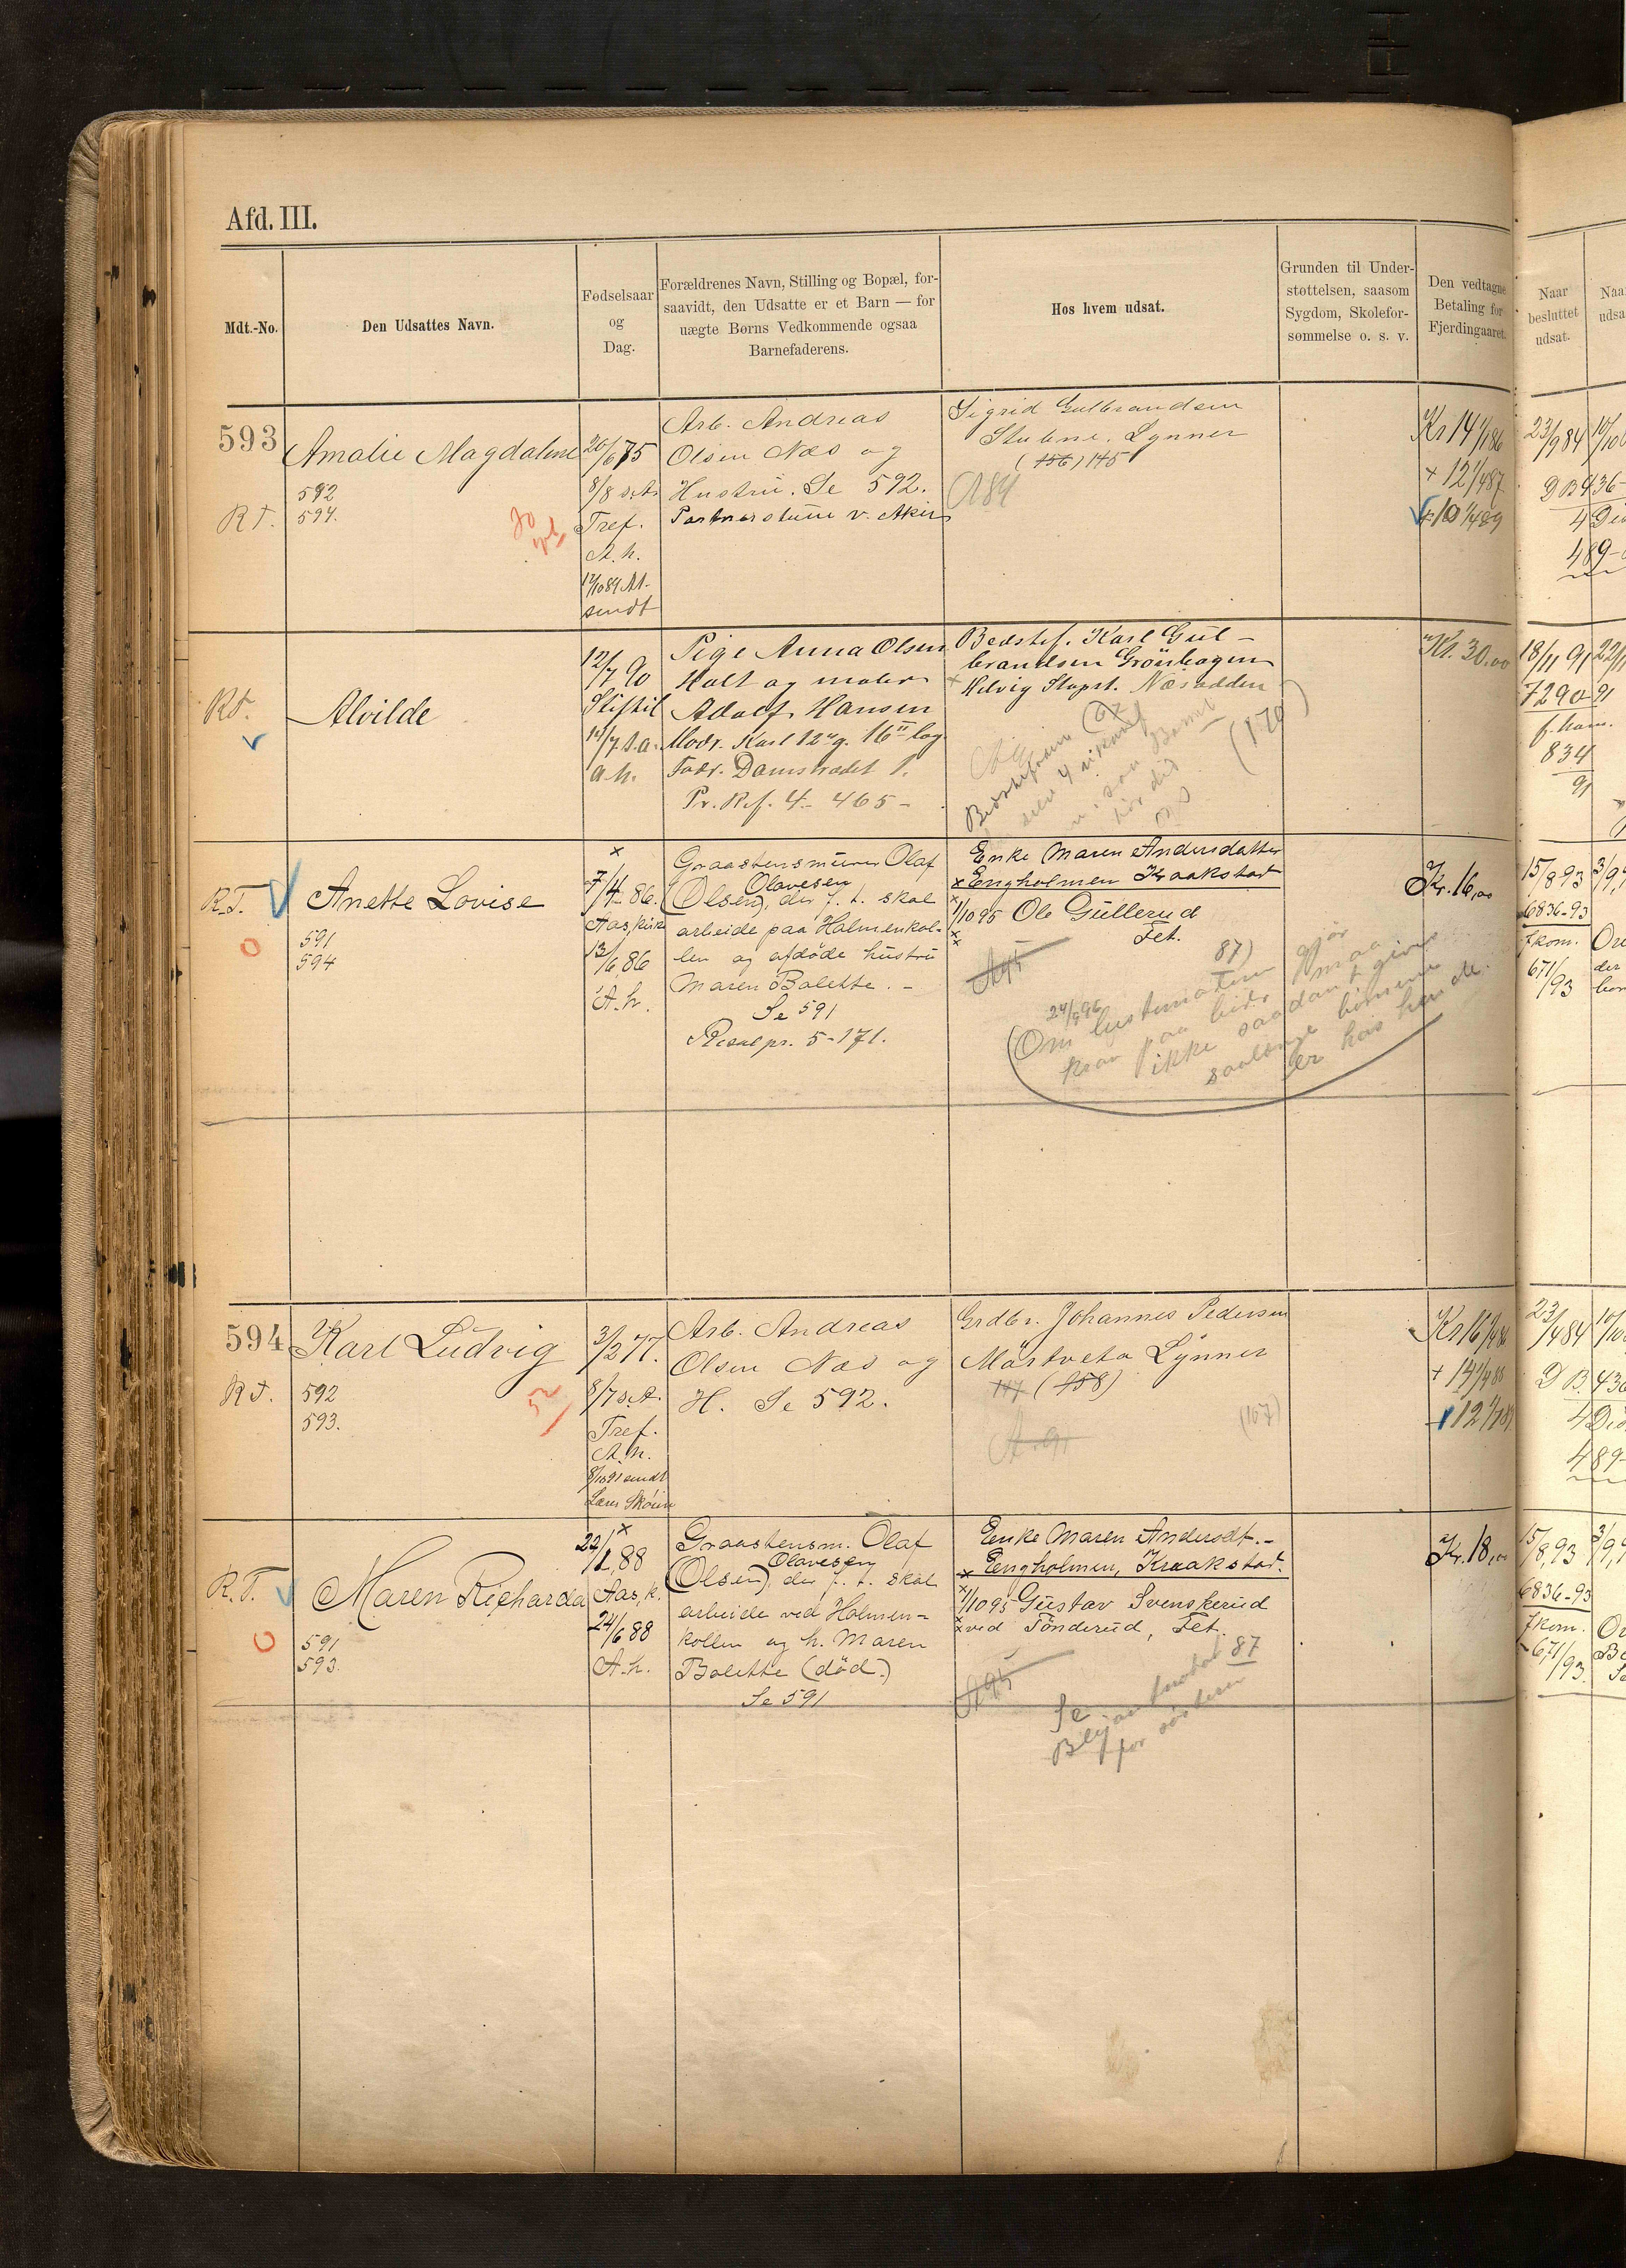 Afd. III.
Mdt.-No.
Den Udsattes Navn.
Fødselsaar
og
Dag.
Forældrenes Navn, Stilling og Bopæl, for-
saavidt, den Udsatte er et Barn — for
uægte Børns Vedkommende ogsaa
Barnefaderens.
Hos hvem udsat.
Grunden til Under-
støttelsen, saasom
Sygdom, Skolefor-
sømmelse o. s. v.
Den vedtagne
Betaling for
Fjerdingaaret.
Naar
besluttet
udsat.
Naa
udsa
593
R.T.
Amalie Magdalene
592
594.
20/6 75
8/8 s.A.
Tref.
A.h.
sendt
Arb. Andreas
Olsen Næs og
Hustru. Se 592.
Portnerstuen v. Aker
Sigrid Gulbrandsen
Stubene. Lynner
(156) 145
A84
Kr 14 1/1 86
+ 12 1/4 87
+ 10 1/4 89
23/9 84
10/10
D B 436-
4 Did
489-
R.T.
Alvilde
12/7 90
Stiftel
14/7 s.a.
a.h.
Pige Anna Olsen
Holt og maler
Adolf Hansen
Modr. Karl 12s g. 16 II log
Fadr. Damstrædet 1.
Pr. Ref. 4- 465-
Bedstef. Karl Gul-
brandsen Grönhagen
Helvig Stopst. Næsodden
(170)
Kr. 30.00
18/11 91
22/11
7290-91
f. kom.
834
91
R.T.
Anette Lovise
591
594
7/4 86.
Aas, kirk
13/6 86
A.h.
Graastensmurer Olaf
Olavesen
(Olsen), der f. t. skal
arbeide paa Holmenkol-
len og afdöde hustru
Maren Bolette. -
Se 591
Resol pr. 5-171.
Enke Maren Andersdatter
x Engholmen Kraakstad
1/10 95 Ole Gullerud
Fet.
A95
87)
24/8 96
(Om Gustmoren gjör
krav paa maa
ikke saadant gives
saalænge börnene
er hos hende.
Kr. 16,00
15/8 93
3/9,
6836-93
f kom.
671/93
594
R.T.
Karl Ludvig
592
593.
52
3/2 77.
8/7 s.A.
Tref.
A.h.
8/10 91 sendt
Arb. Andreas
Olsen Næs og
H. Se 592.
Grdbr. Johannes Pedersen
Mörtveta Lynner
147 (158)
A.91
(107)
Kr 16 1/4 86
+ 14 1/4 88
+ 12 1/1 89
23/4 84
10/10
D B. 436
4 Did
489-
R.T.
Maren Richarda
591
593.
22/1 88
Aas, k.
24/6 88
A.h.
Graastensm. Olaf
Olavesen
(Olsen), der f. t. skal
arbeide ved Holmen-
kollen og h. Maren
Bolette (död.)
Se 591
Enke Maren Andersdt.-
x Engholmen, Kraakstad.
1/10 95 Gustav Svenskerud
ved Tönderud, Fet.
A95
87
Se
for sösteren
Kr. 18,00
15/8,93
3/9,
6836-93
f kom.
671/93.